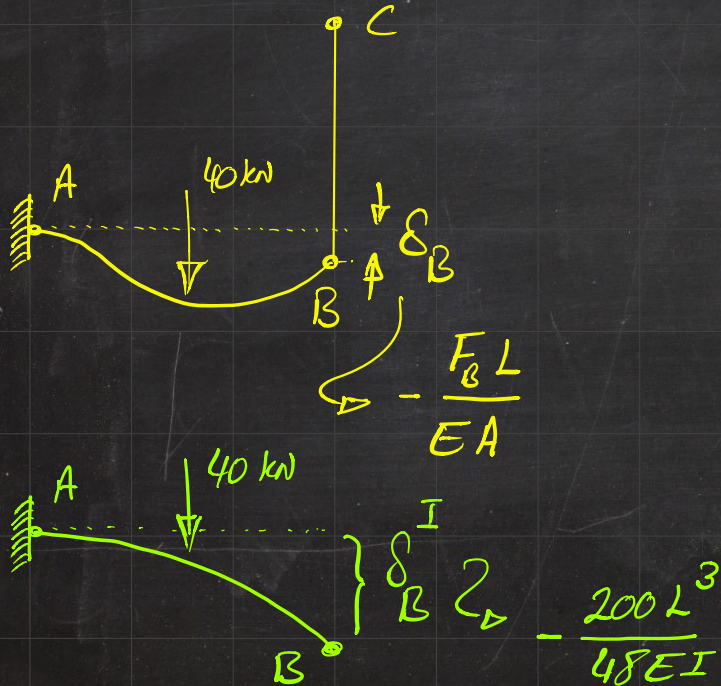 C
A
40 kN
δ_B
B
- F_B L / EA
A
40 kN
δ_B^I
- 200 L³ / 48 EI
B